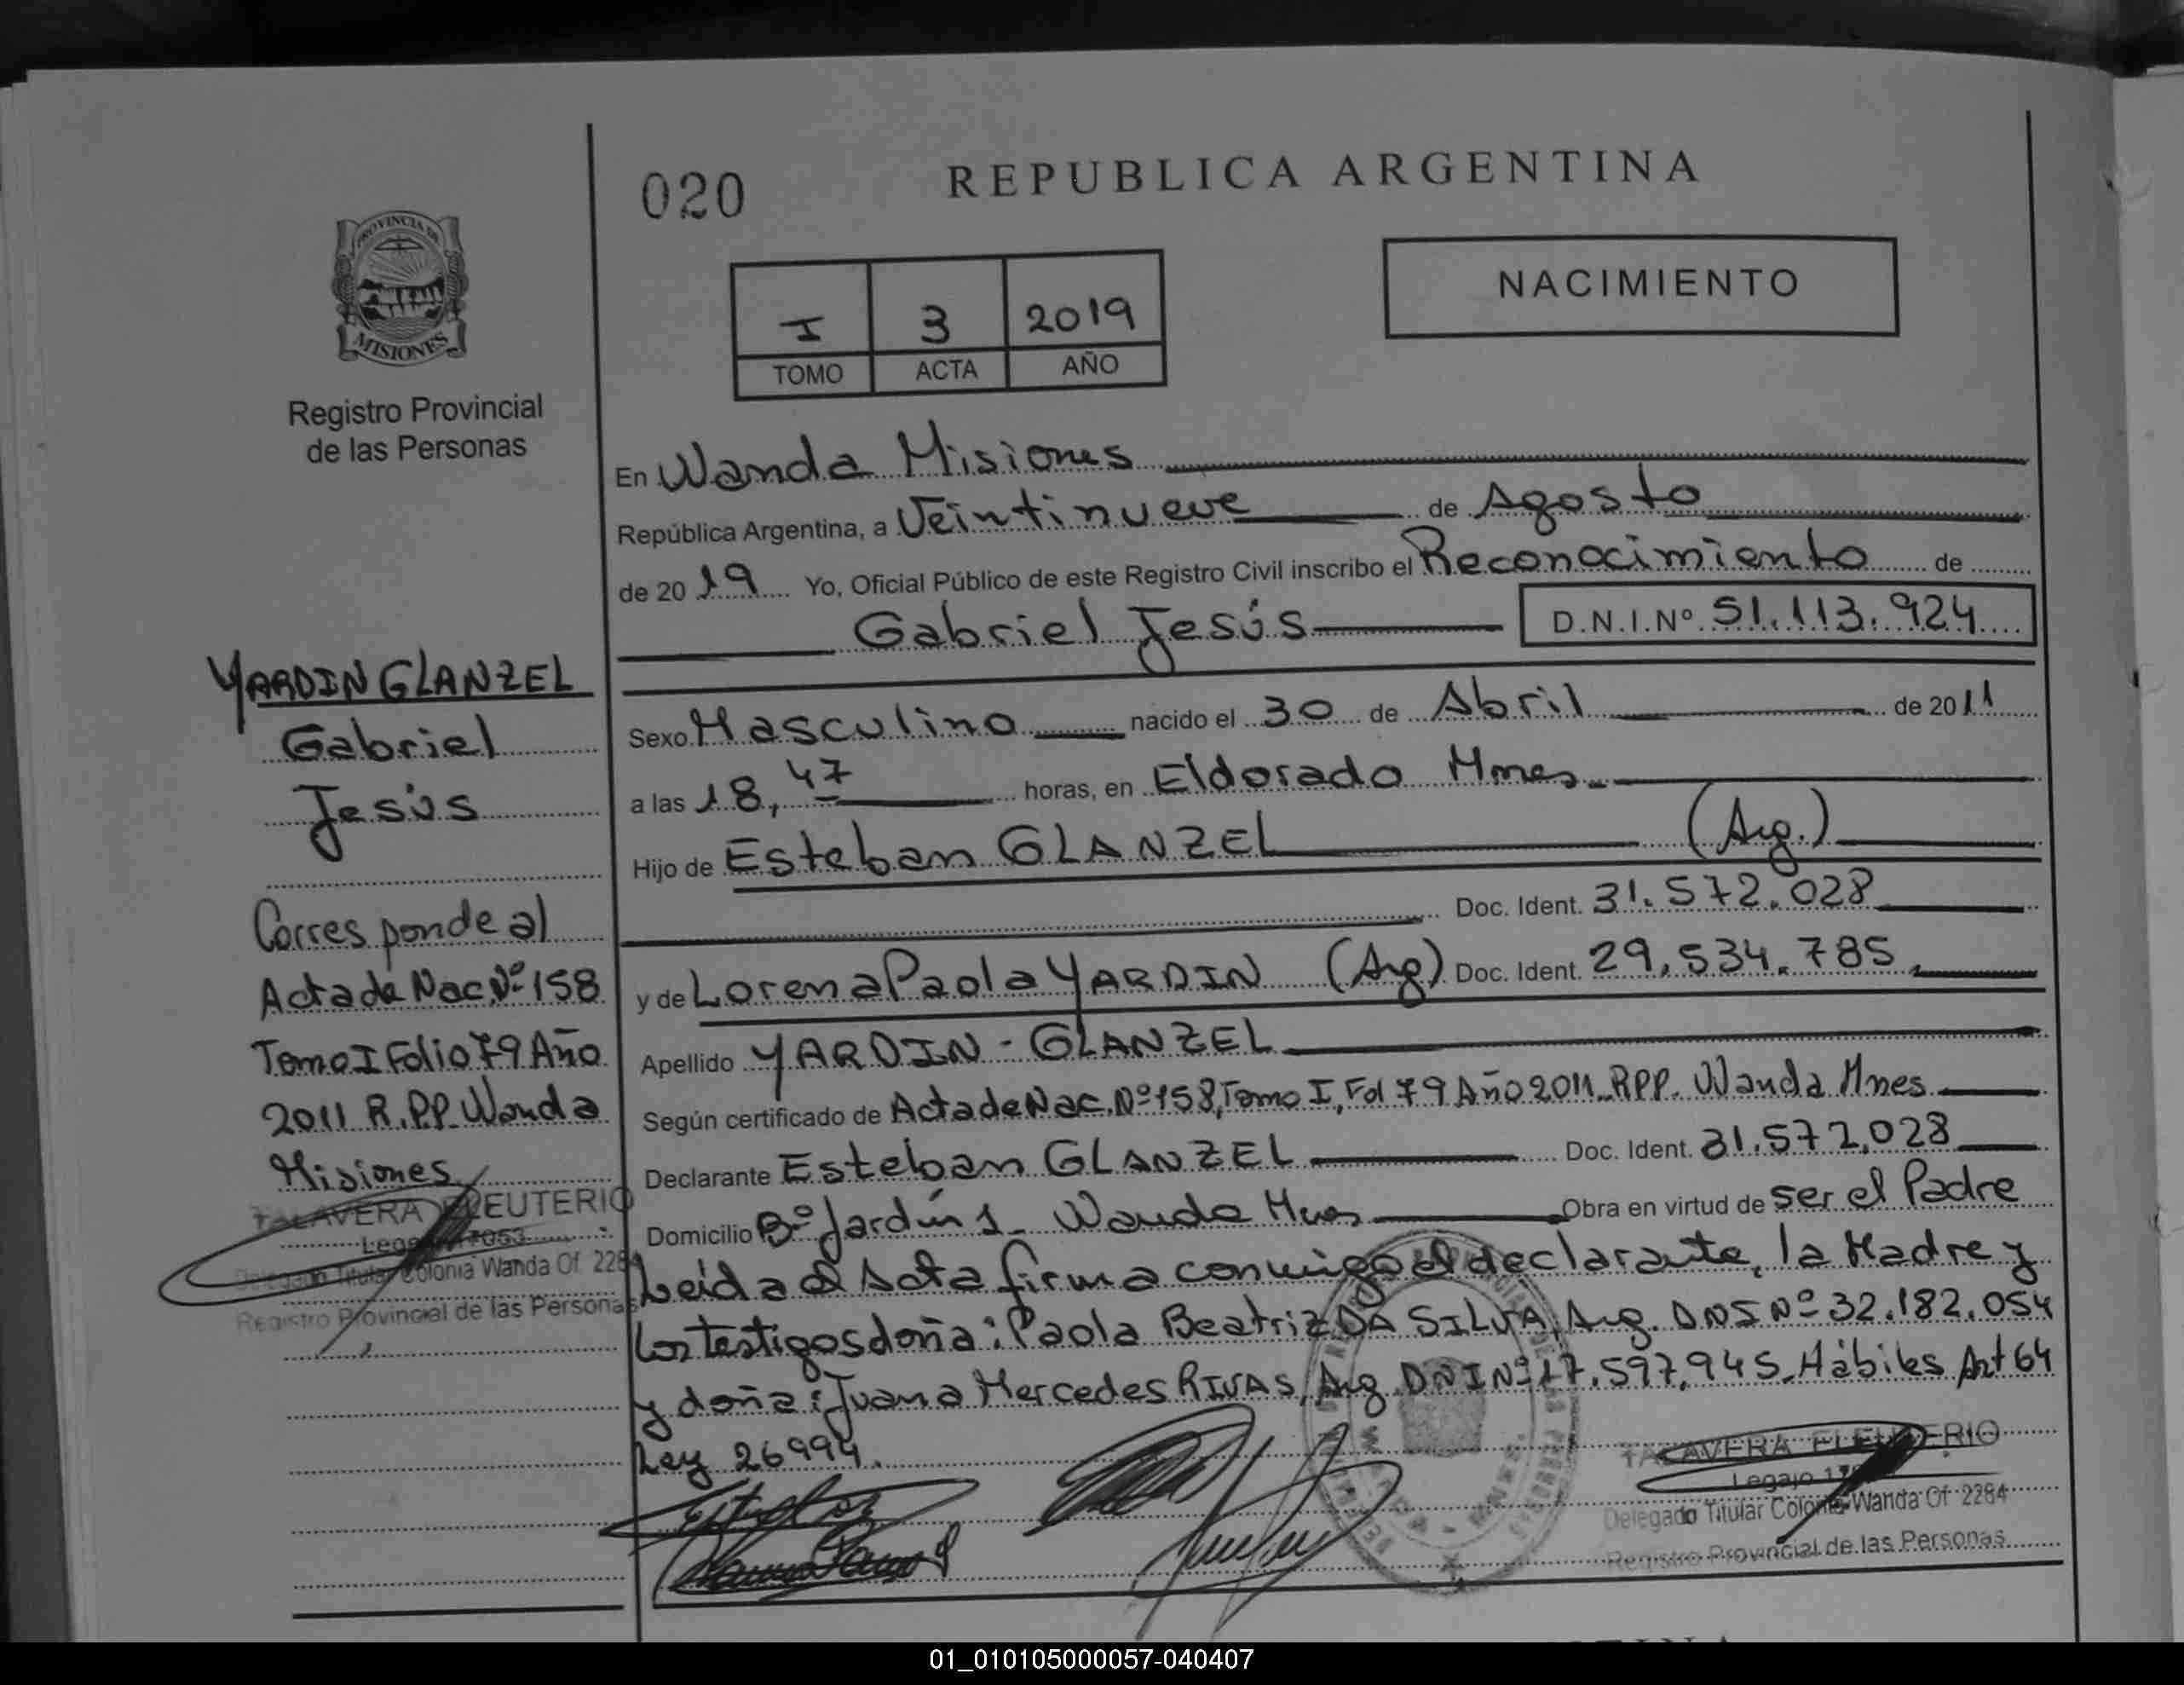 020
REPUBLICA ARGENTINA
PROVINCIA DE
MISIONES
Registro Provincial
de las Personas
I 3 2019
TOMO ACTA AÑO
NACIMIENTO
En Wanda Misiones
República Argentina, a Veintinueve de Agosto
de 2019 Yo, Oficial Público de este Registro Civil inscribo el Reconocimiento de
Gabriel Jesús D.N.I.Nº 51.113.924
Sexo Masculino nacido el 30 de Abril de 2011
a las 18,47 horas, en Eldorado Mnes
Hijo de Esteban GLANZEL (Arg.)
Doc. Ident. 31.572.028
y de Lorena Paola YARDIN (Arg) Doc. Ident. 29,534.785
Apellido YARDIN - GLANZEL
Según certificado de Acta de Nac. Nº 158, Tomo I, Fol 79 Año 2011 RPP. Wanda Mnes
Declarante Esteban GLANZEL Doc. Ident. 31.572,028
Domicilio Bº Jardín 1 - Wanda Mnes Obra en virtud de ser el Padre
Leida el Acta firma conmigo el declarante, la Madre y
los testigos doña: Paola Beatriz DA SILVA, Arg. DNI Nº 32.182.054
y doña: Juana Mercedes RIVAS, Arg DNI Nº 17.597.945. Hábiles Art 64
Ley 26994.
TALAVERA ELEUTERIO
Legajo
Delegado Titular Colonia Wanda Of. 2284
Registro Provincial de las Personas
YARDIN GLANZEL
Gabriel
Jesús
Corresponde al
Acta de Nac. Nº 158
Tomo I Folio 79 Año
2011 R.P.P. Wanda
Misiones
TALAVERA ELEUTERIO
Delegado Titular Colonia Wanda Of. 2284
Registro Provincial de las Personas
01_010105000057-040407